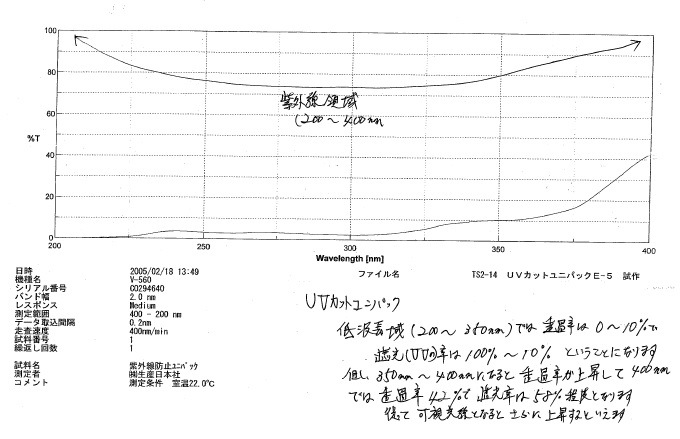 100
80
60
%T
40
20
0
200
250
300
350
400
Wavelength [nm]
紫外線領域
(200～400nm
日時 2005/02/18 13:49
機種名 V-560
シリアル番号 C0294640
バンド幅 2.0 nm
レスポンス Medium
測定範囲 400 - 200 nm
データ取込間隔 0.2nm
走査速度 400nm/min
試料番号 1
繰返し回数 1
試料名 紫外線防止ﾕﾆﾊﾟｯｸ
測定者 ㈱生産日本社
コメント 測定条件 室温22.0℃
ファイル名 TS2-14 UVカットユニパックE-5 試作
UVカットユニパック
低波長域(200～350nm)では 透過率は0～10%で
遮光(UVの)率は100%～10% ということになります
但し 350nm～400nmになると 透過率が上昇して 400nm
では 透過率42%で 遮光率は58%程度となります
従て 可視光線となると さらに上昇するといえます